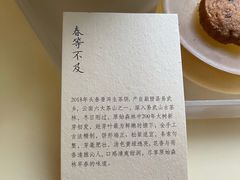 春等不及
2018年头春普洱生茶饼，产自勐腊县易武
乡，云南六大茶山之一，深入易武山古茶
林，冬日刚过，原始森林中200年大树新
芽初发，经芽叶最为鲜嫩的摘下，全手工
古法精制，饼形端正，松紧适宜，条索匀
整，芽毫肥壮，汤色黄绿透亮，花香与雨
香清雅沁人，口感清爽甜润，尽享原始森
林早春的味道。